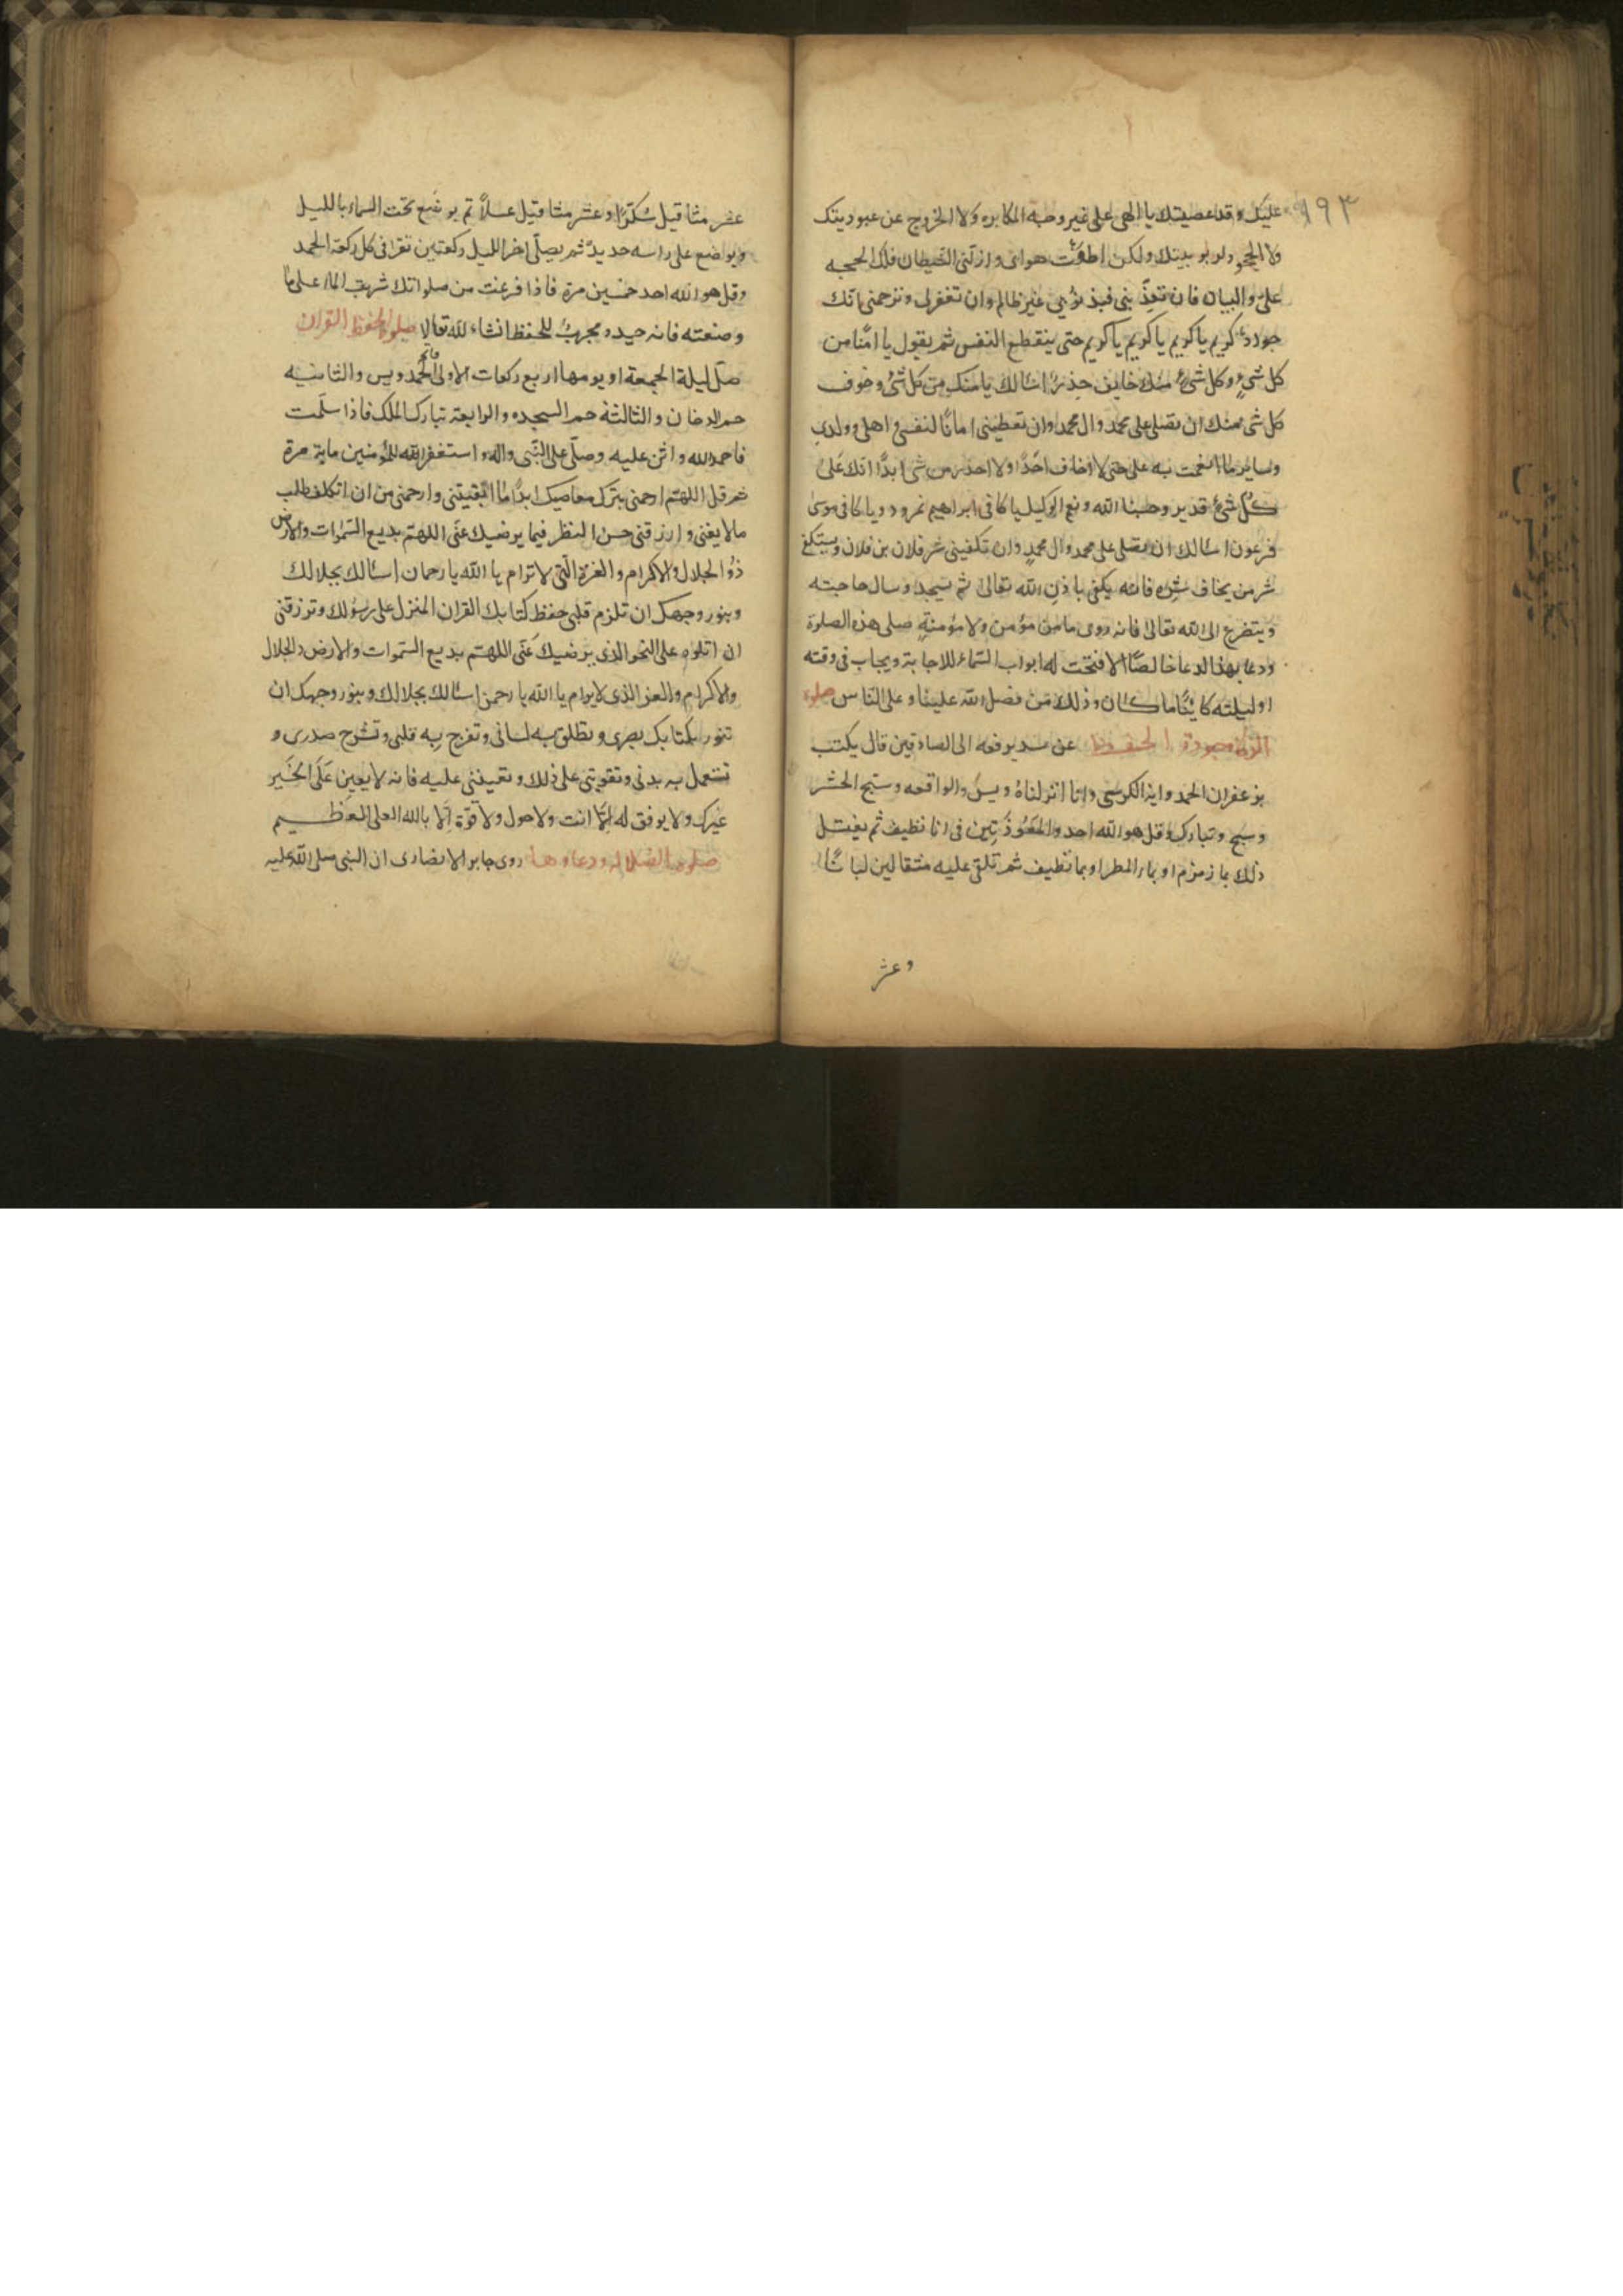 ١٩٣
عليك وقد عصيتك يا الهى على غير وجه المكابره ولا الخروج عن عبوديتك
ولا الجحود لربوبيتك ولكن اطعت هواى وازلنى الشيطان فلك الحجه
على والبيان فان تعذبنى فبذنوبى غير ظالم وان تغفرلى وترحمنى فانك
جواد كريم يا كريم يا كريم يا كريم حتى ينقطع النفس ثم يقول يا امنا من
كل شئ وكل شئ منك خايف حذر اسالك بامنك من كل شئ وخوف
كل شئ منك ان تصلى على محمد وال محمد وان تعطينى امانا لنفسى واهلى وولدى
وساير ما انعمت به على حتى لا اخاف احدا ولا احذر من شئ ابدا انك على
كل شئ قدير وحسبنا الله ونعم الوكيل يا كافى ابراهيم نمرود ويا كافى موسى
فرعون اسالك ان تصلى على محمد وال محمد وان تكفينى شر فلان بن فلان ويستكفى
شر من يخاف شره فانه يكفى باذن الله تعالى ثم يسجد وسال حاجته
ويتضرع الى الله تعالى فانه روى ما من مؤمن ولا مؤمنة صلى هذه الصلوة
ودعا بهذا الدعا خالصا الا فتحت له ابواب السماء للاجابة ويجاب فى وقته
او ليلته كاينا ما كان وذلك من فضل الله علينا وعلى الناس صلوة
الحفظ عن سدير رفعه الى الصادقين قال يكتب
بزعفران الحمد واية الكرسى وانا انزلناه ويس والواقعه وسبح الحشر
وسبح وتبارك وقل هو الله احد والمعوذتين فى انا نظيف ثم يغسل
ذلك بما زمزم او بماء المطر او بما نظيف ثم تلقى عليه مثقالين لبانا
وعشر
عشر مثاقيل سكرا وعشر مثاقيل عسلا ثم يوضع تحت السماء بالليل
ويواضع على راسه حديد ثم يصلى اخر الليل ركعتين تقرا فى كل ركعة الحمد
وقل هو الله احد خمسين مرة فاذا فرغت من صلواتك شربت الماء على ما
وصنعته فانه جيد مجرب للحفظ انشاء لله تعالا صلوة لحفظ القران
صل ليلة الجمعة او يومها اربع ركعات الاولى الحمد ويس والثانيه
حم الدخان والثالثة حم السجده والرابعة تبارك الملك فاذا سلمت
فاحمد الله واثن عليه وصل على النبى واله واستغفر الله للمؤمنين ماية مرة
ثم قل اللهم ارحمنى بترك معاصيك ابدا ما ابقيتنى وارحمنى من ان اتكلف طلب
ما لا يغنى وارزقنى حسن النظر فيما يرضيك عنى اللهم بديع السموات والارض
ذو الجلال والاكرام والعزة التى لا ترام يا الله يا رحمان اسالك بجلالك
وبنور وجهك ان تلزم قلبى حفظ كتابك القران المنزل على رسولك وترزقنى
ان اتلوه على النحو الذى يرضيك عنى اللهم بديع السموات والارض ذالجلال
والاكرام والعز الذى لا يرام يا الله يا رحمن اسالك بجلالك وبنور وجهك ان
تنور بكتابك بصرى وتطلق به لسانى وتفرج به قلبى وتشرح صدرى و
تستعمل به بدنى وتقوينى على ذلك وتعيننى عليه فانه لا يعين على الخير
غيرك ولا يوفق له الا انت ولا حول ولا قوة الا بالله العلى العظيم
صلوة الضلاله ودعاوها روى جابر الانصارى ان النبى صلى الله عليه